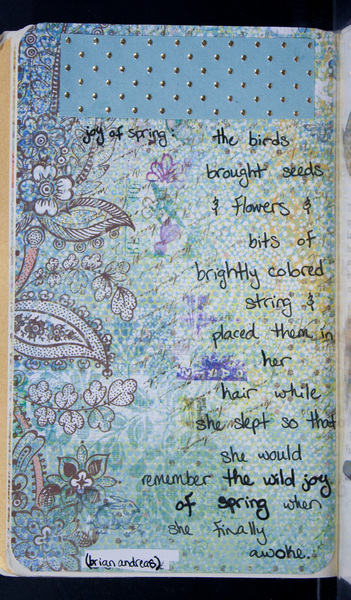 joy of spring: the birds
brought seeds
& flowers &
bits of
brightly colored
string &
placed them in
her
hair while
she slept so that
she would
remember the wild joy
of spring when
she finally
awoke.
(brian andreas)